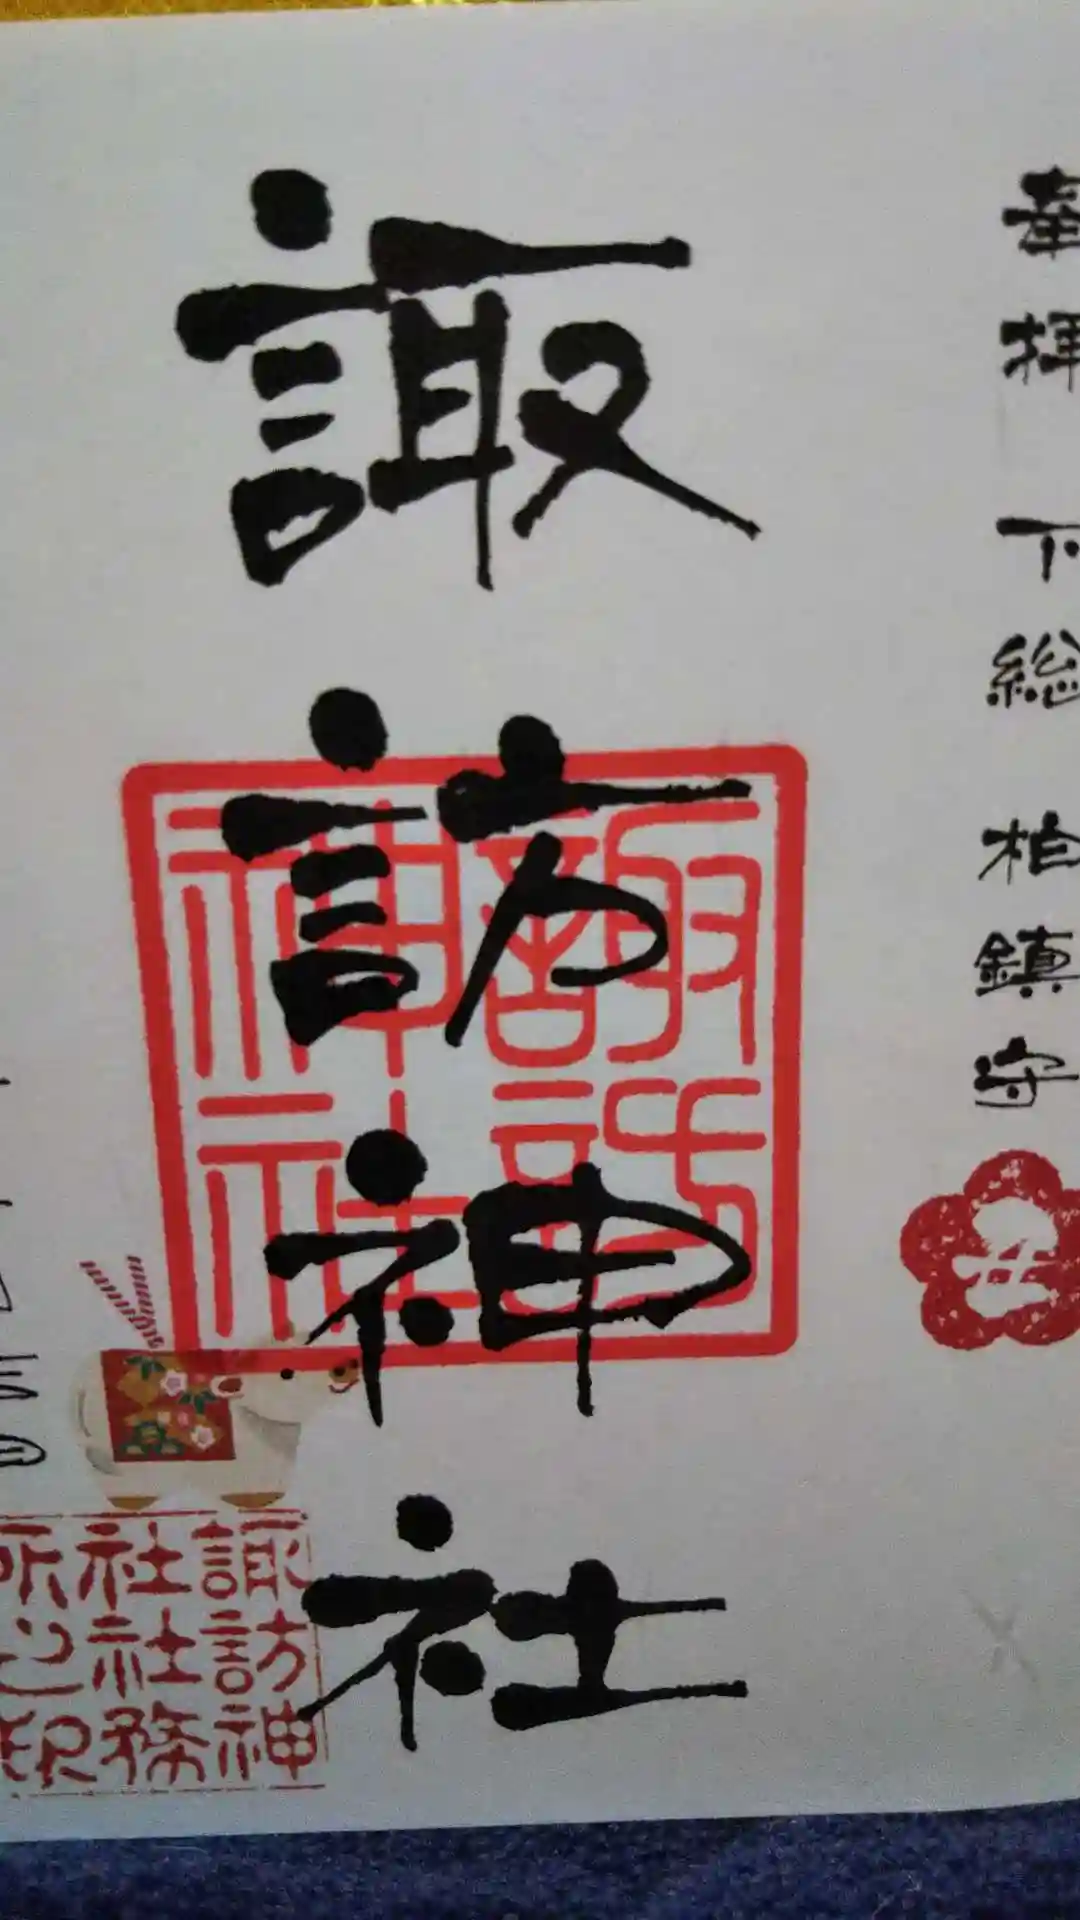 奉拝 下総 柏鎮守
諏訪神社
諏訪神社
諏訪神
社社務
所之印